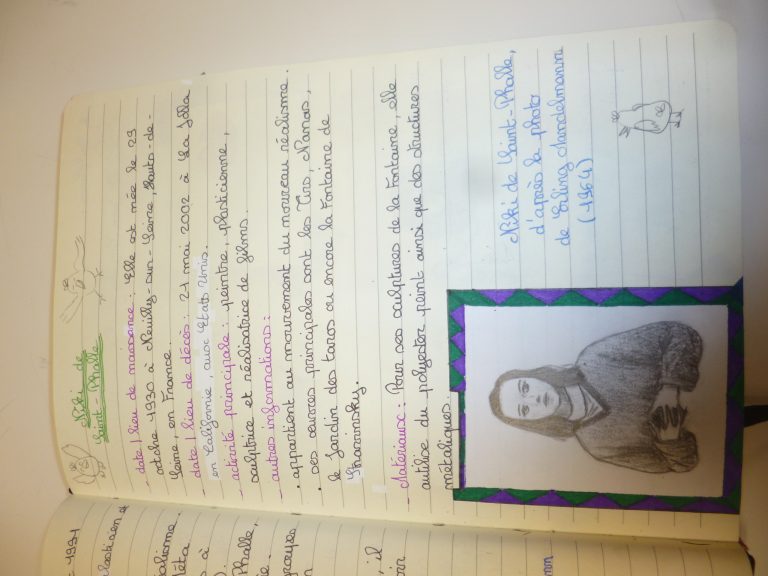 Niki de
Saint-Phalle
- date / lieu de naissance : Elle est née le 29
octobre 1930 à Neuilly-sur-Seine, Hauts-de-
Seine, en France.
- date / lieu de décès : 21 mai 2002 à La Jolla
en Californie, aux Etats Unis.
- activité principale : peintre, plasticienne,
sculptrice et réalisatrice de films.
- autres informations :
• appartient au mouvement du nouveau réalisme.
• ses œuvres principales sont les Tirs, Nanas,
le Jardin des tarots ou encore la Fontaine de
Stravinsky.
- Matériaux : Pour ses sculptures de la Fontaine, elle
utilise du polyester peint ainsi que des structures
métaliques.
Niki de Saint-Phalle,
d'après la photo
de Erling Mandelmann
(1964)